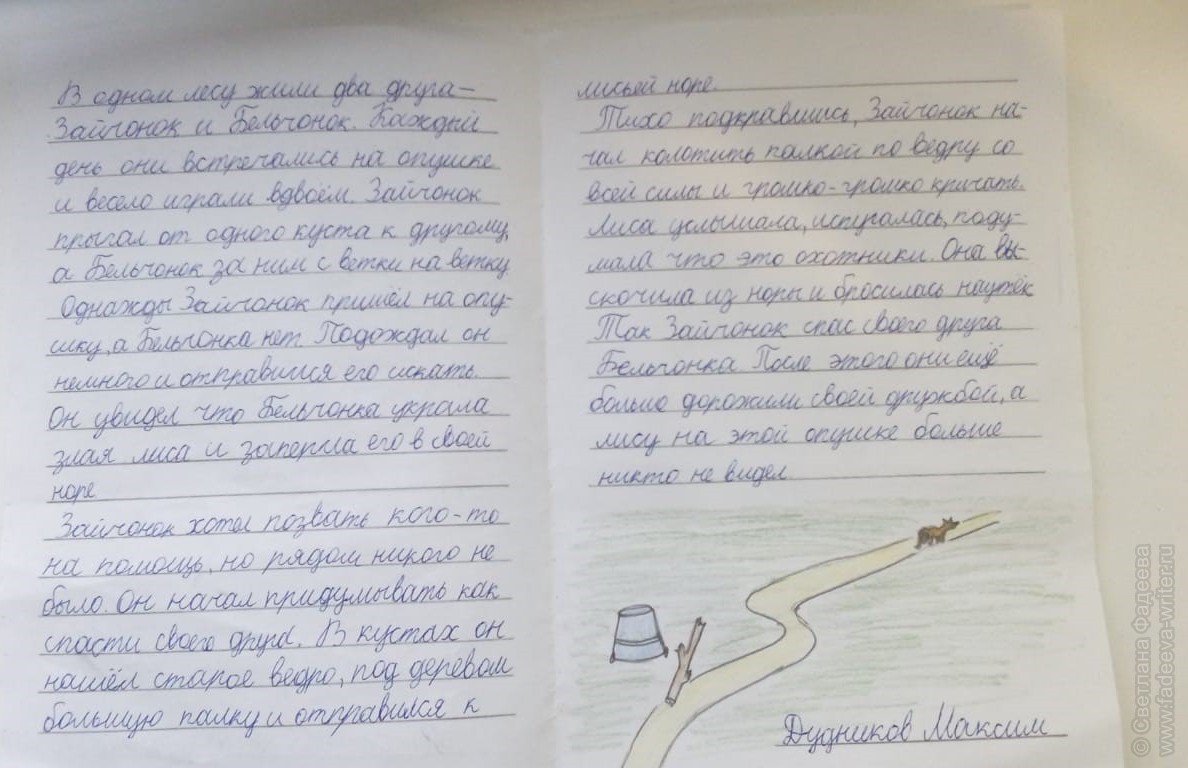 В одном лесу жили два друга –
Зайчонок и Бельчонок. Каждый
день они встречались на опушке
и весело играли вдвоём. Зайчонок
прыгал от одного куста к другому,
а Бельчонок за ним с ветки на ветку
Однажды Зайчонок пришёл на опу-
шку, а Бельчонка нет. Подождал он
немного и отправился его искать.
Он увидел что Бельчонка украла
злая лиса и заперла его в своей
норе
Зайчонок хотел позвать кого-то
на помощь, но рядом никого не
было. Он начал придумывать как
спасти своего друга. В кустах он
нашёл старое ведро, под деревом
большую палку и отправился к
лисьей норе.
Тихо подкравшись, Зайчонок на-
чал колотить палкой по ведру со
всей силы и громко-громко кричать.
Лиса услышала, испугалась, поду-
мала что это охотники. Она вы-
скочила из норы и бросилась наутёк
Так Зайчонок спас своего друга
Бельчонка. После этого они ещё
больше дорожили своей дружбой, а
лису на этой опушке больше
никто не видел
Дудников Максим
© Светлана Фадеева
www.fadeeva-writer.ru